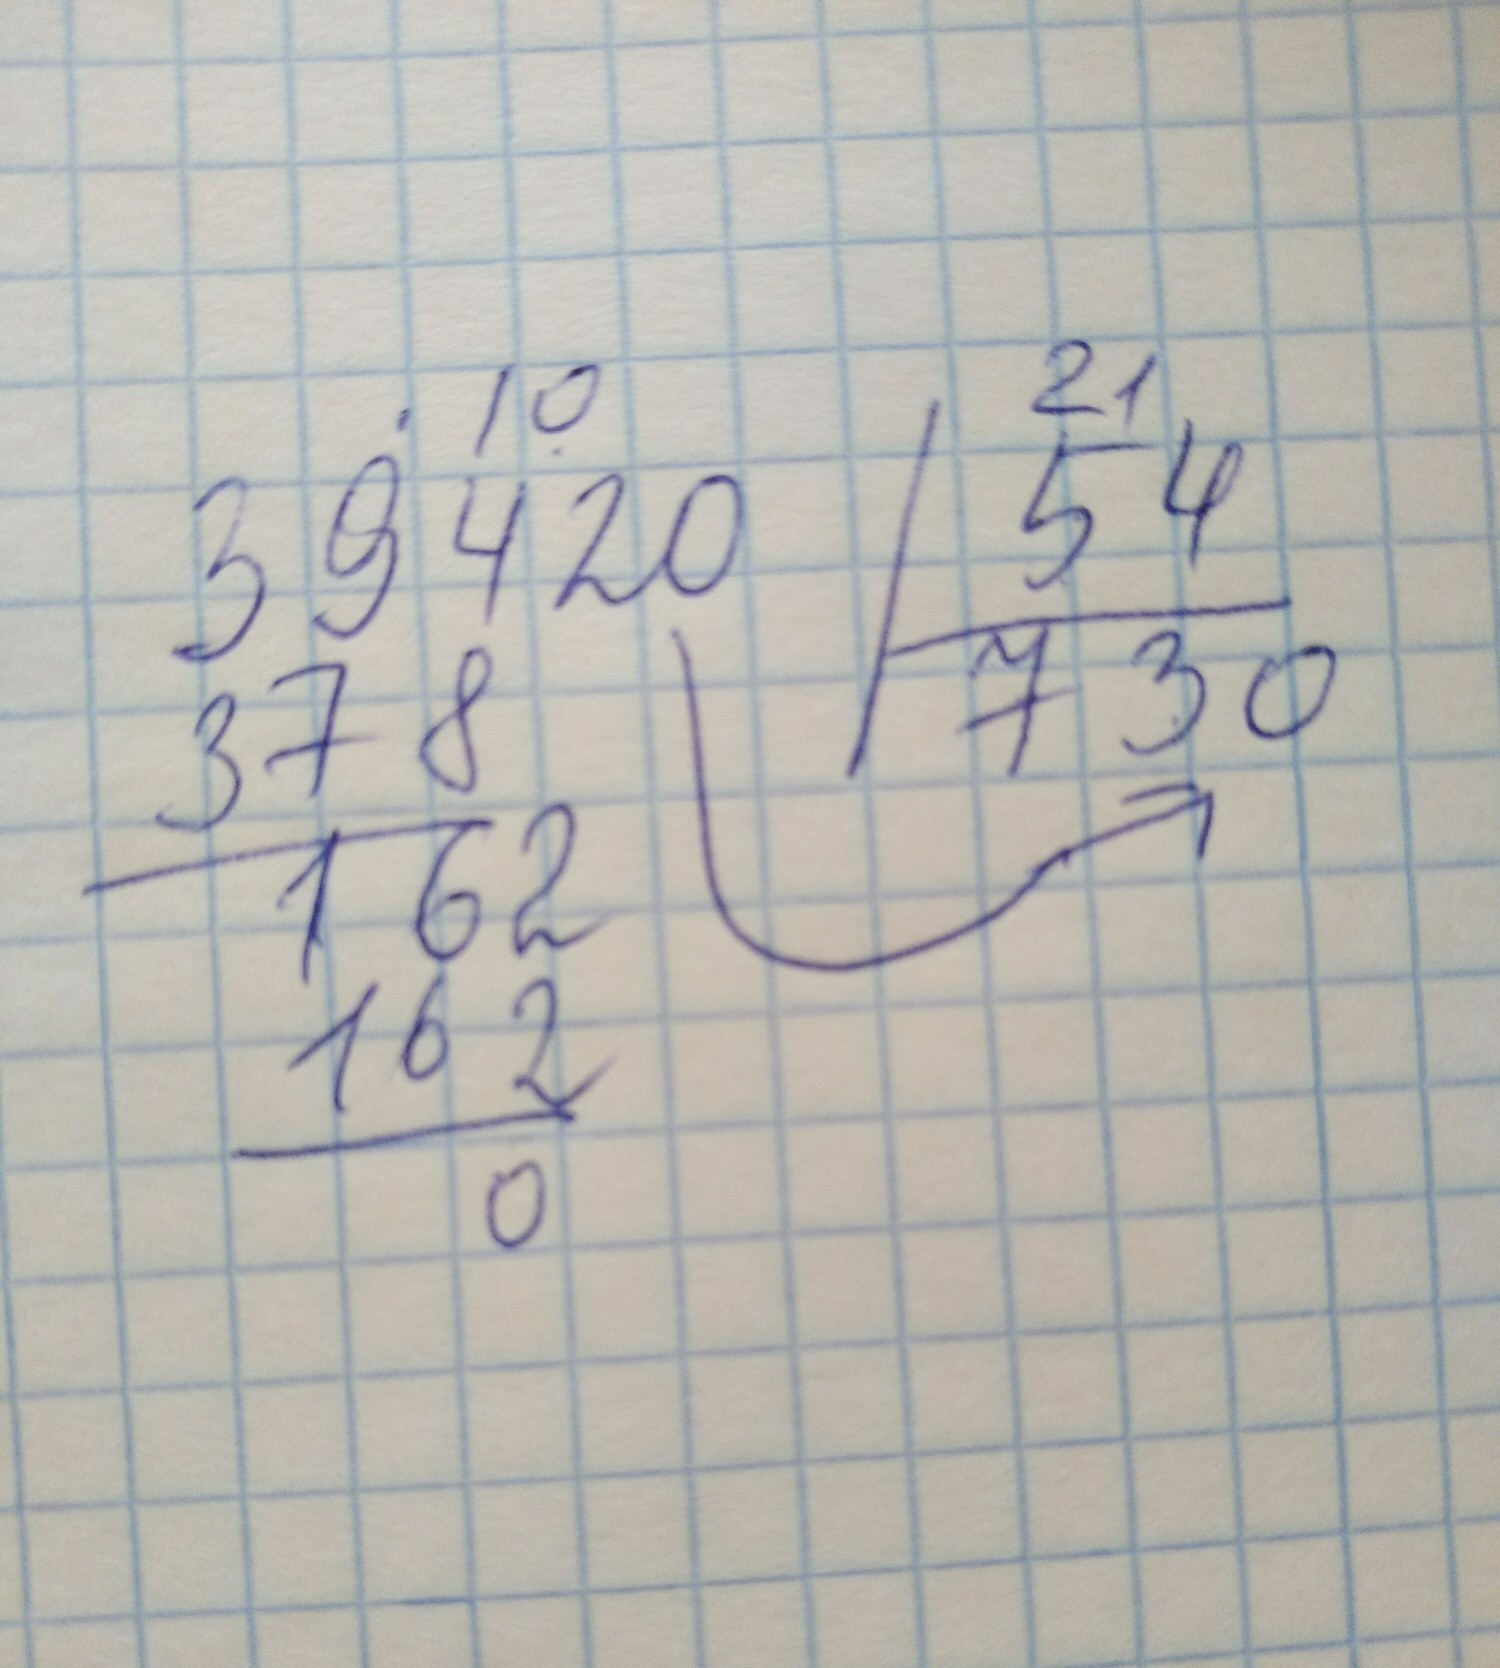 10 21
39420 54
378 730
162
162
0